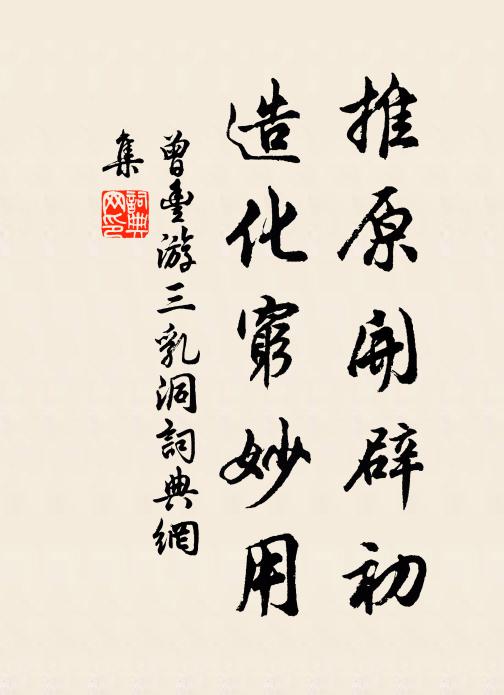 推原開辟初
造化窮妙用
曾豐游三乳洞詞典網
集
詞典
网印